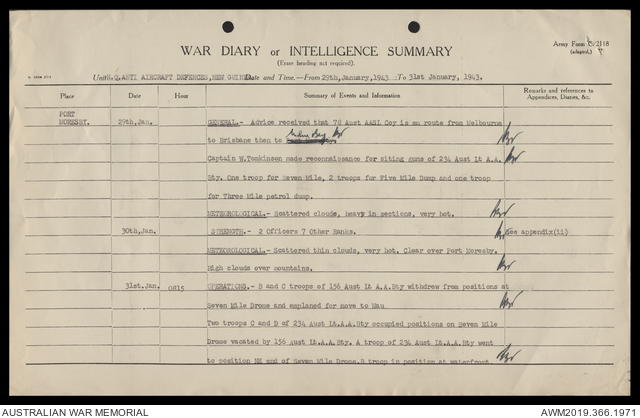 Army Form C/2118
(adapted.)
WAR DIARY or INTELLIGENCE SUMMARY
(Erase heading not required).
Unit H.Q.ANTI AIRCRAFT DEFENCES,NEW GUINEA Date and Time.—From 29th,January,1943 To 31st January, 1943.
Place Date Hour Summary of Events and Information Remarks and references to
Appendices, Diaries, &c.
PORT
MORESBY. 29th,Jan. GENERAL.- Advice received that 78 Aust AASL Coy is en route from Melbourne
to Brisbane then to Milne Bay
Captain W.Tomkinson made reconnaissance for siting guns of 234 Aust Lt A.A.
Bty. One troop for Seven Mile, 2 troops for Five Mile Dump and one troop
for Three Mile petrol dump.
METEOROLOGICAL.- Scattered clouds, heavy in sections, very hot.
30th,Jan. STRENGTH.- 2 Officers 7 Other Ranks. See appendix(ii)
METEOROLOGICAL.- Scattered thin clouds, very hot. Clear over Port Moresby.
High clouds over mountains.
31st.Jan. 0815 OPERATIONS.- B and C troops of 156 Aust Lt A.A.Bty withdrew from positions at
Seven Mile Drome and emplaned for move to Wau
Two troops C and D of 234 Aust Lt.A.A.Bty occupied positions on Seven Mile
Drome vacated by 156 Aust Lt.A.A. Bty. A troop of 234 Aust Lt.A.A.Bty went
to position NE end of Seven Mile Drome.B troop in position at waterfront
AUSTRALIAN WAR MEMORIAL
AWM2019.366.1971